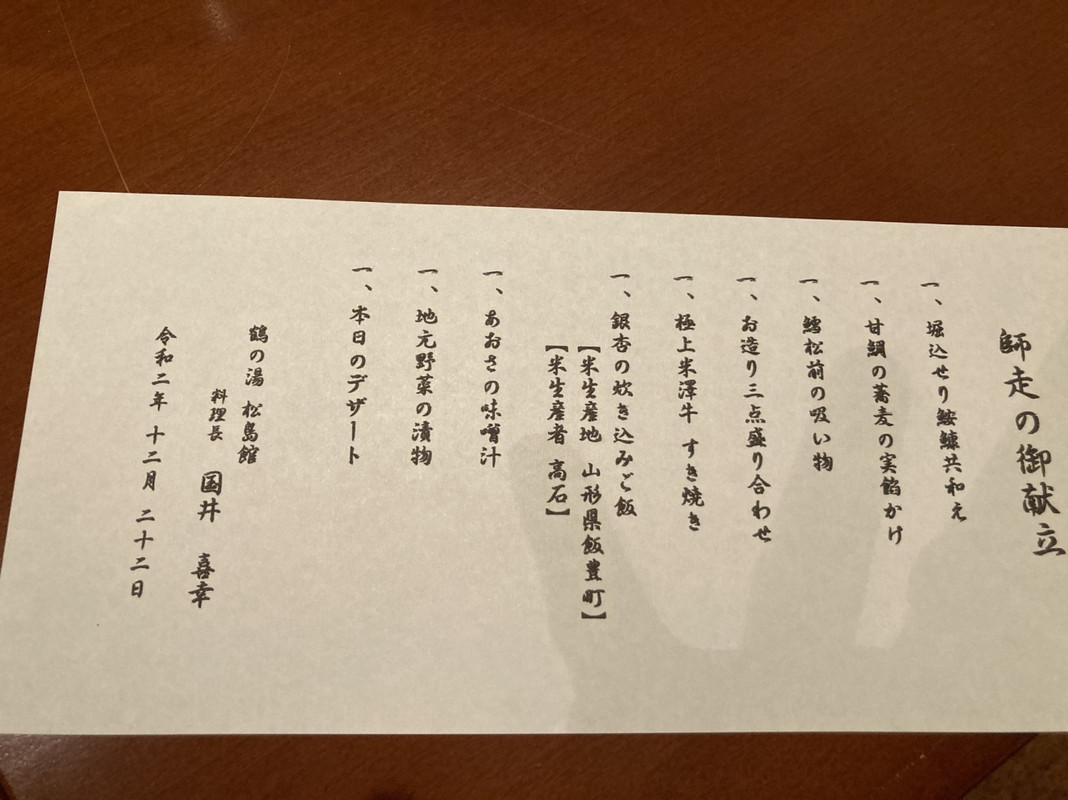 師走の御献立
一、堀込せり鮟鱇共和え
一、甘鯛の蕎麦の実餡かけ
一、鱈松前の吸い物
一、お造り三点盛り合わせ
一、極上米澤牛 すき焼き
一、銀杏の炊き込みご飯
【米生産地 山形県飯豊町】
【米生産者 高石】
一、あおさの味噌汁
一、地元野菜の漬物
一、本日のデザート
鶴の湯 松島館
料理長 国井 喜幸
令和二年 十二月 二十二日